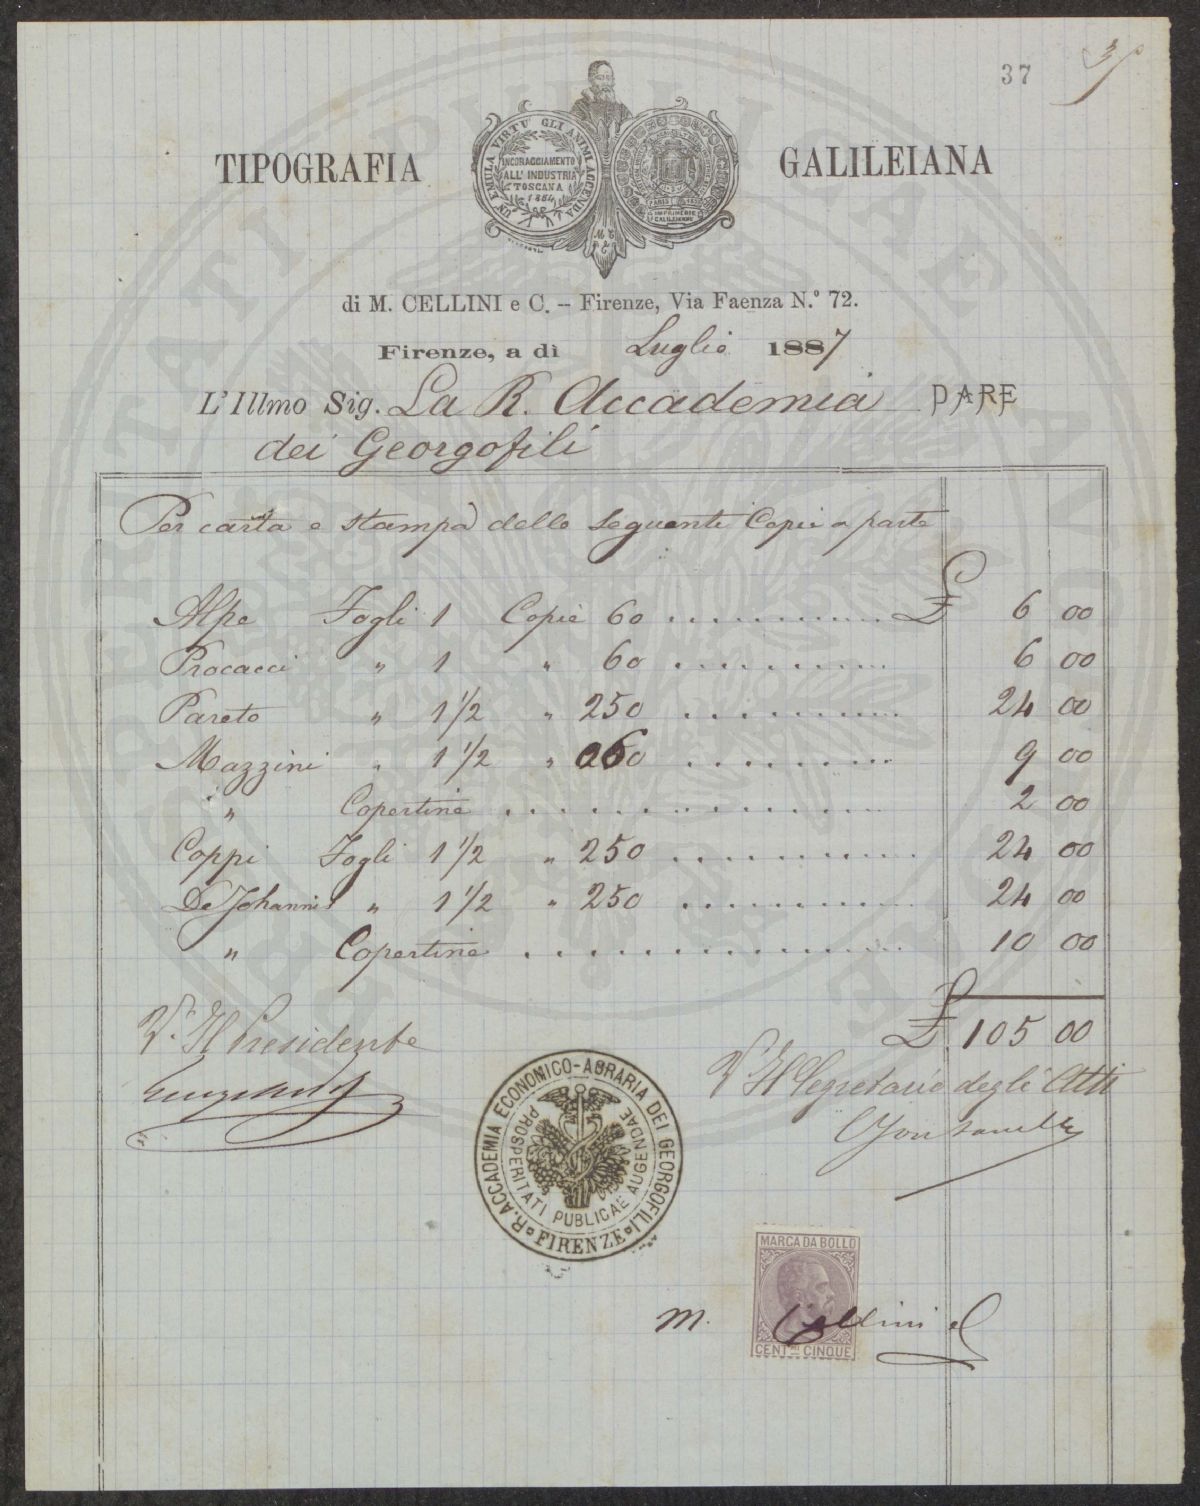 37
TIPOGRAFIA GALILEIANA
UN EMULA VIRTU' GLI ANIMI ACCENDA
INCORAGGIAMENTO
ALL' INDUSTRIA
TOSCANA
1854
PARIS
IMPRIMERIE
GALILEIENNE
di M. CELLINI e C. – Firenze, Via Faenza N.º 72.
Firenze, a dì Luglio 1887
L'Illmo Sig. La R. Accademia DARE
dei Georgofili
Per carta e stampa delle seguenti Copie a parte
Alpe Fogli 1 Copie 60 .............. £ 6 00
Procacci " 1 " 60 .............. 6 00
Pareto " 1 1/2 " 250 .............. 24 00
Mazzini " 1 1/2 " 60 .............. 9 00
" Copertine .............. 2 00
Coppi Fogli 1 1/2 " 250 .............. 24 00
De Johannis " 1 1/2 " 250 .............. 24 00
" Copertine .............. 10 00
£ 105 00
V. Il Presidente
V. Il Segretario degli Atti
R. ACCADEMIA ECONOMICO-AGRARIA DEI GEORGOFILI
PROSPERITATI PUBLICAE AUGENDAE
FIRENZE
MARCA DA BOLLO
M. Cellini e C
CENT.MI CINQUE